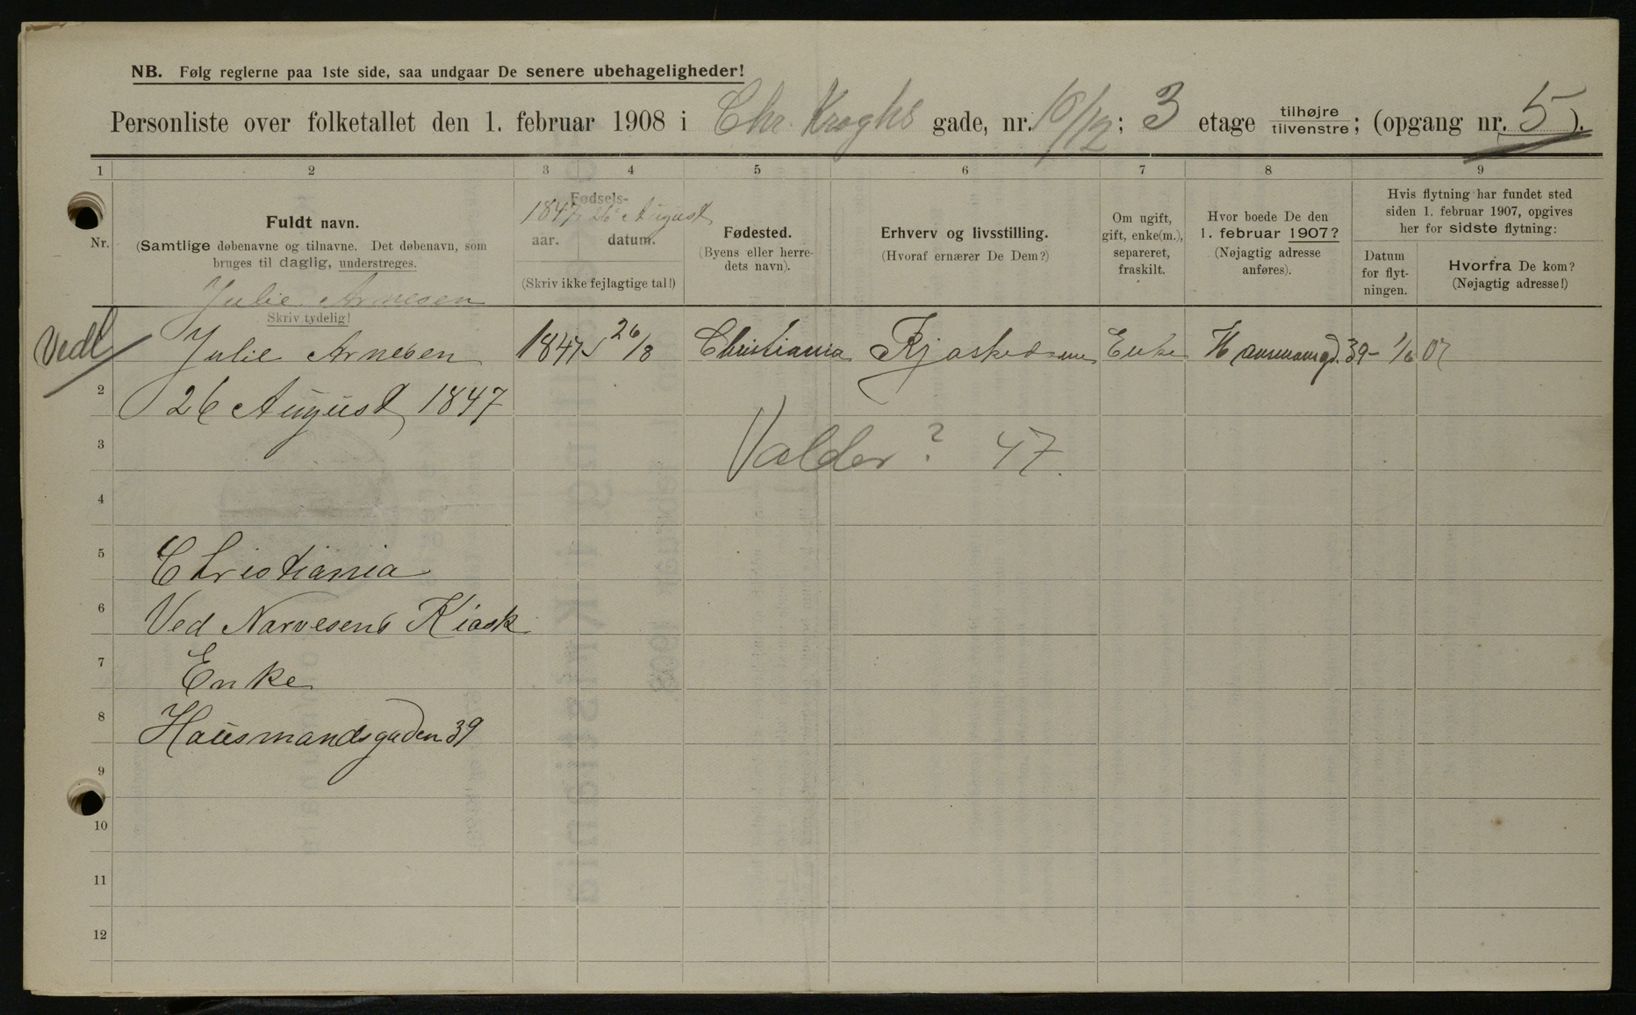 NB. Følg reglerne paa 1ste side, saa undgaar De senere ubehageligheder!
Personliste over folketallet den 1. februar 1908 i Chr. Kroghs gade, nr. 10/12; 3 etage tilhøjre tilvenstre; (opgang nr. 5).
1 2 3 4 5 6 7 8 9
Nr.
Fuldt navn.
(Samtlige døbenavne og tilnavne. Det døbenavn, som
bruges til daglig, understreges.
Julie Arnesen
Skriv tydelig!
Fødsels-
1847 26 August
aar. datum.
(Skriv ikke fejlagtige tal!)
Fødested.
(Byens eller herre-
dets navn).
Erhverv og livsstilling.
(Hvoraf ernærer De Dem?)
Om ugift,
gift, enke(m.),
separeret,
fraskilt.
Hvor boede De den
1. februar 1907?
(Nøjagtig adresse
anføres).
Hvis flytning har fundet sted
siden 1. februar 1907, opgives
her for sidste flytning:
Datum
for flyt-
ningen.
Hvorfra De kom?
(Nøjagtig adresse!)
Vedl
Julie Arnesen 1847 26/8 Christiania Enke 39 - 1/6 07
2 26 August 1847
3 Valder? 47.
4
5 Christiania
6 Ved Narvesens Kiosk
7 Enke
8 Hausmandsgaden 39
9
10
11
12